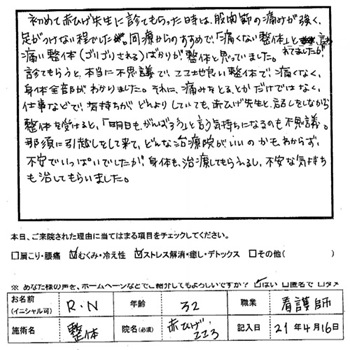 初めて赤ひげ先生に診てもらった時は、股関節の痛みが強く、
足がつけない程でした。同僚からのすすめで、「痛くない整体」と
痛い整体(ゴリゴリされる)ばかりが整体と思っていました。
診てもらうと、本当に不思議で、ここは優しい整体で、痛くなく、
身体全部がわかりました。それに、痛みをとるだけではなく、
仕事などで、気持ちがどんよりしていても、赤ひげ先生と、話しをしながら
整体を受けると、「明日もがんばろう」と言う気持ちになるのも不思議。
那須に引越しをして来て、どんな治療院がいいのかもわからず、
不安でいっぱいでしたが、身体も、治療してもらえるし、不安な気持ち
も治してもらいました。
本日、ご来院された理由に当てはまる項目をチェックしてください。
□肩こり・腰痛 ☑むくみ・冷え性 ☑ストレス解消・癒し・デトックス □その他( )
※ あなた様の声を、ホームページなどでご紹介してもよろしいですか? ☑はい □匿名で □ダメ
お名前 (イニシャル可) R・N 年齢 32 職業 看護師
施術名 整体 院名(必須) 赤ひげ 記入日 21年4月16日